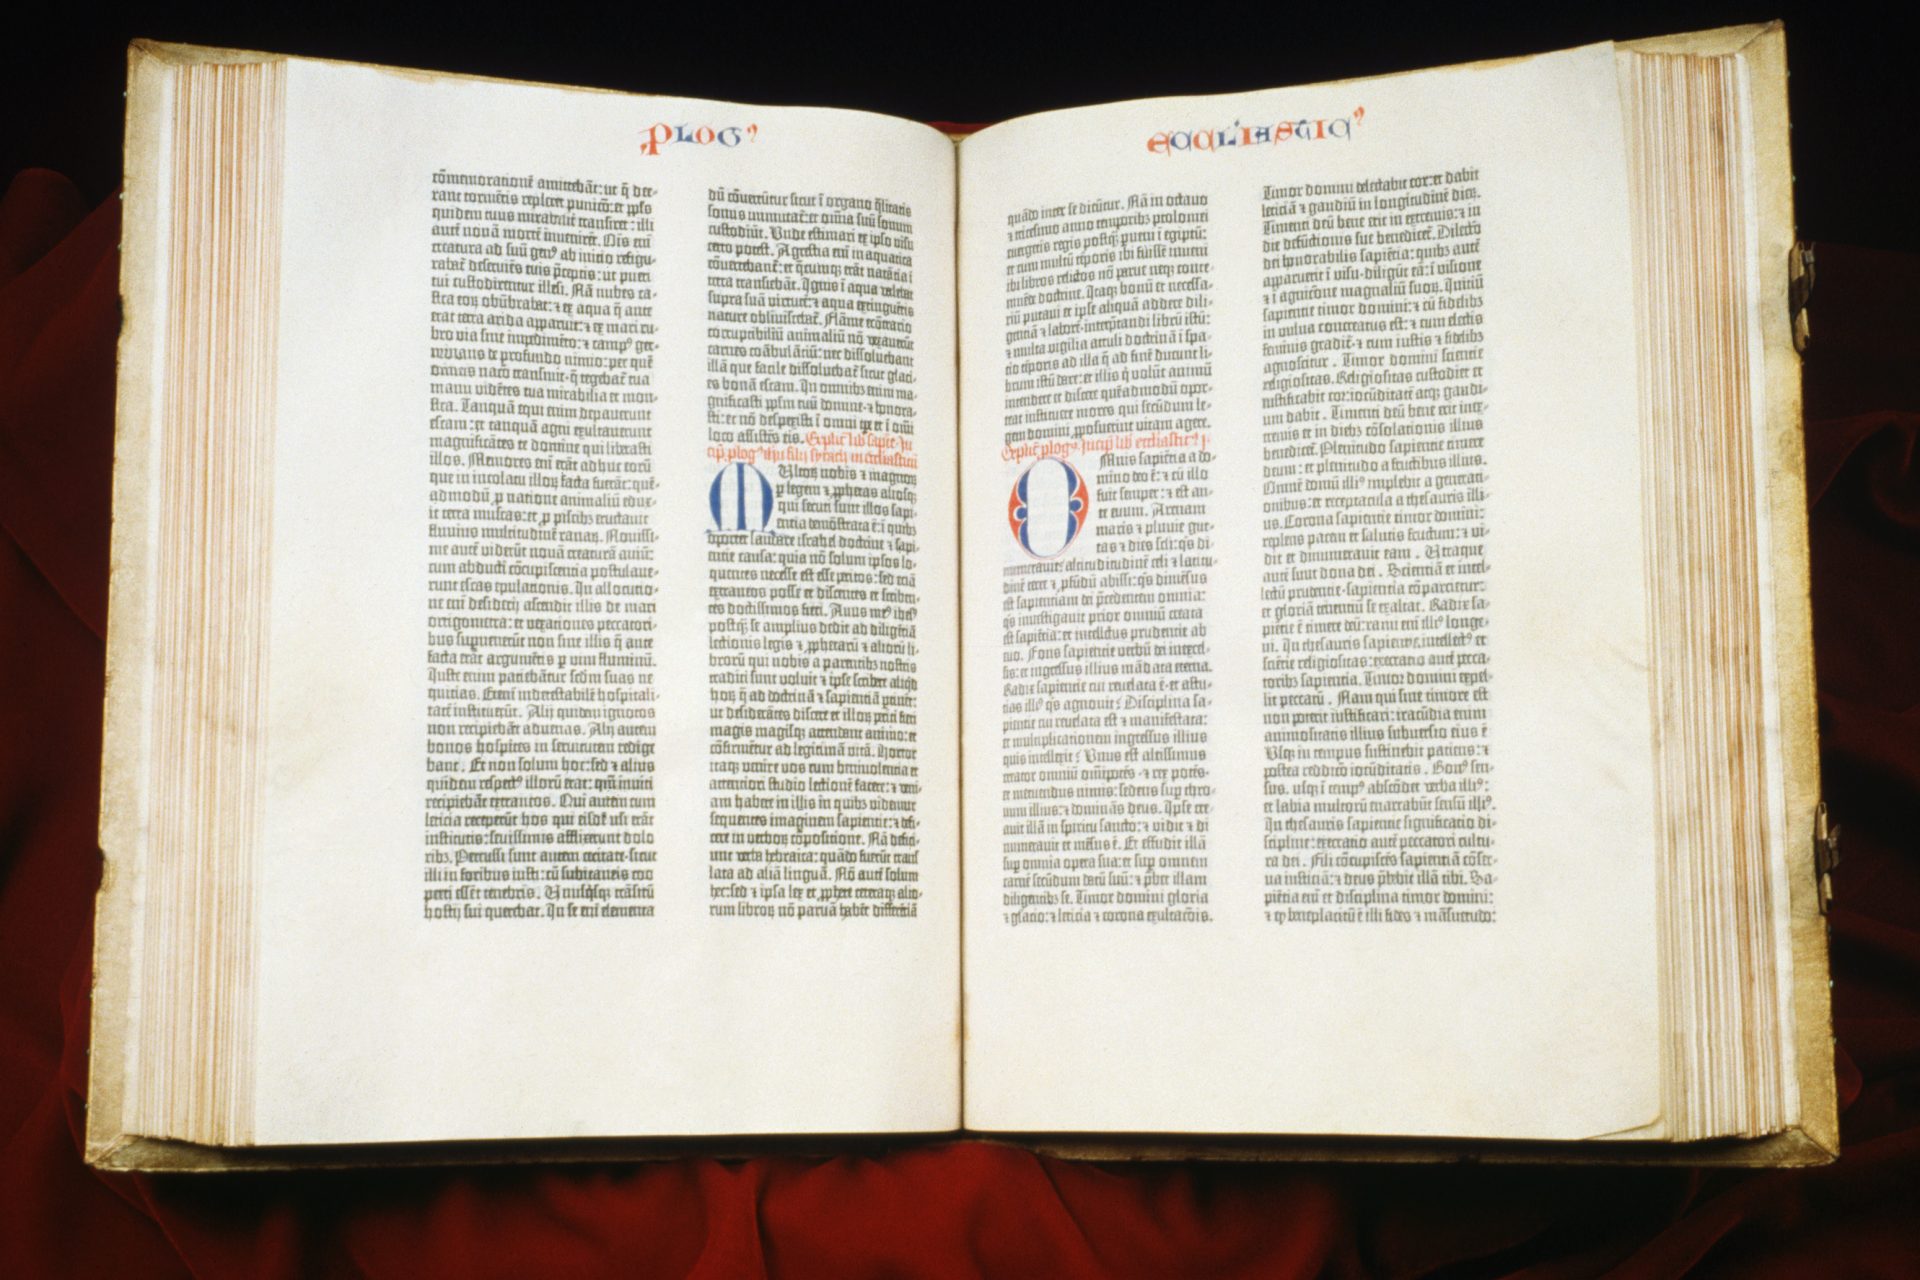 PLOG⁹
cōmemoratione amittebāt: ut q̄ dee-
rant tormētis repleret punitio: et pp̄ls
quidem tuus mirabilit͛ transiret: illi
autē nouā mortē inuenirēt. Om̄s em̄
creatura ad suū gen⁹ ab initio refigu-
rabat͛ deseruiēs tuis p̄ceptis: ut pueri
tui custodirentur illesi. Nā nubes ca-
stra eoꝝ obūbrabat: ⁊ ex aqua q̄ ante
erat terra arida apparuit: ⁊ ex mari ru-
bro via sine impedimēto: ⁊ camp⁹ ger-
minans de profundo nimio: per quē
omnis nacō transiuit · q̄ tegebat͛ tua
manu vidētes tua mirabilia et mon-
stra. Tanquā equi enim depauerunt
escam: et tanquā agni exultauerunt
magnificātes te domine qui liberasti
illos. Memores em̄ erāt adhuc eoꝝ
que in incolatu illoꝝ facta fuerāt: quē-
admodū ꝓ natione animaliū edux-
it terra muscas: et ꝓ piscibꝫ eructauit
fluuius multitudinē ranaꝝ. Nouissi-
me autē viderūt nouā creaturā auiū:
cum abducti cōcupiscentia postulaue-
runt escas epulationis. In allocutio-
ne em̄ desiderij ascendit illis de mari
ortigometra: et vexationes peccatori-
bus supuenerūt non sine illis q̄ ante
facta erāt argumētis ꝑ vim fluminū.
Juste enim patiebātur scd̄m suas ne
quitias. Etenī indetestabilē hospitali-
tatē instituerūt. Alij quidem ignotos
non recipiebāt aduenas. Alij autem
bonos hospites in seruitutem redige
bant. Et non solum hec: sed ⁊ alius
quidem respect⁹ illorū erat: qm̄ inuiti
recipiebāt extraneos. Qui autem cum
leticia receperūt hos qui eisdē usi erāt
institutis: seuissimis afflixerunt dolo
ribꝫ. Percussi sunt autem cecitate · sicut
illi in foribus iusti: cū subitaneis coo
perti essēt tenebris. Unusq̄sq; trāsitū
hostij sui querebat. In se em̄ elementa
dū cōuertūtur sicut ī organo q̄litatis
sonus immutat͛: et om̄ia suū sonum
custodiūt. Unde estimari ex ipso visu
certo potest. Agrestia em̄ in aquatica
cōuertebant͛: et q̄cumq; erāt natātia ī
terra transiebāt. Ignis ī aqua valebat
supra suā virtutē: ⁊ aqua extinguētis
nature obliuiscebat͛. Flāme ecōtrario
corruptibiliū animaliū nō vexauerūt
carnes coābulātiū: nec dissoluebant
illā que facile dissoluebat͛ sicut glaci-
es bonā escam. In omnibꝫ enim ma-
gnificasti pp̄lm tuū domine · ⁊ honora-
sti: et nō despexisti ī omni tꝑe et ī om̄i
loco assistēs eis. Explicit lib̄ sapie · In
cip̄ plog⁹ ihū filij syrach in ecclasticū
Multoꝝ nobis et magnoꝝ
ꝑ legem ⁊ ꝓphetas aliosq;
qui secuti sunt illos sapi-
entia demōstrata ē: ī quibꝫ
oportet laudare israhel doctrine ⁊ sapi-
entie causa: quia nō solum ipsos lo-
quentes necesse est esse peritos: sed etiā
extraneos posse et discentes et scriben-
tes doctissimos fieri. Auus me⁹ ihes⁹
postq̄ se amplius dedit ad diligētiā
lectionis legis ⁊ ꝓphetarū ⁊ aliorū li-
brorū qui nobis a parentibꝫ nostris
traditi sunt voluit ⁊ ipse scribere aliqd
hoꝝ q̄ ad doctrinā ⁊ sapientiā ptinēt:
ut desiderātes discere et illoꝝ periti fieri
magis magisq; attendant animo: et
cōfirmētur ad legitimā vitā. Hortor
itaq; venire vos cum beniuolentia et
attentiori studio lectionē facere: ⁊ veni-
am habere in illis in quibꝫ videmur
sequentes imaginem sapientie: ⁊ defi-
cere in verboꝝ cōpositione. Nā defici-
unt verba hebraica: quādo fuerīt trans
lata ad aliā linguā. Nō autē solum
hec: sed ⁊ ipsa lex et ꝓphete ceteraq; alio-
rum libroꝝ nō paruā habēt differētiā
ECCL'IASTIC⁹
quādo inter se dicūtur. Nā in octauo
⁊ tricesimo anno temporibꝫ ptolomei
euergetis regis postq̄ pueni ī egiptū:
et cum multū tēporis ibi fuissē inueni
ibi libros relictos nō parue neq; contē-
nende doctrine. Itaq; bonū et necessa-
riū putaui et ipse aliquā addere dili-
gentiā ⁊ laborē · interp̄tandi librū istū:
⁊ multa vigilia attuli doctrinā ī spa-
cio tēporis ad illa q̄ ad finē ducunt li-
brum istū dare: et illis q̄ volūt animū
intendere et discere quēadmodū opor-
teat instituere mores qui secūdum le-
gem domini ꝓposuerint vitam agere.
Explic̄ plog⁹. Incip̄ lib̄ eccl̄iastic⁹ j ·
Omnis sapiētia a do-
mino deo ē: ⁊ cū illo
fuit semper: ⁊ est an-
te euum. Arenam
maris ⁊ pluuie gut-
tas ⁊ dies scl̄i: q̄s di-
numerauit? altitudinē celi ⁊ latitu-
dinē terre ⁊ ꝓfūdū abissi: q̄s dimēsus
est sapientiam dei p̄cedentem omnia:
q̄s inuestigauit prior omniū creata
est sapiētia: et intellectus prudentie ab
euo. Fons sapientie verbū dei inexcel-
sis: et ingressus illius mādata eterna.
Radix sapientie cui reuelata ē · et astu-
tias illi⁹ q̄s agnouit? Disciplina sa-
pientie cui reuelata est ⁊ manifestata:
et multiplicationem ingressus illius
quis intellexit? Unus est altissimus
creator omniū om̄ipotēs · ⁊ rex potēs ·
et metuendus nimis: sedens sup thro-
num illius: ⁊ dominās deus. Ipse cre-
auit illā in spiritu sancto: ⁊ vidit ⁊ di
numerauit et mēsus ē. Et effudit illā
sup omnia opera sua: et sup omnem
carnē secūdum datū suū: ⁊ p̄bet illam
diligentibꝫ se. Timor domini gloria
⁊ gl̄atio: ⁊ leticia ⁊ corona exultacōis.
Timor domini delectabit cor: et dabit
leticiā ⁊ gaudiū in longitudinē dieꝝ.
Timenti deū bene erit in extremis: ⁊ in
die defūctionis sue benedicet͛. Dilectio
dei honorabilis sapiētia: quibꝫ autē
apparuerit ī visu · diligūt eā: ī visione
⁊ ī agnitione magnaliū suoꝝ. Initiū
sapientie timor domini: ⁊ cū fidelibꝫ
in vulua concreatus est: ⁊ cum electis
feminis gradit͛: ⁊ cum iustis ⁊ fidelibꝫ
agnoscitur. Timor domini scientie
religiositas. Religiositas custodiet et
iustificabit cor: iocūditatē atq; gaudi-
um dabit. Timenti deū bene erit inex-
tremis et in diebꝫ cōsolationis illius
benedicet͛. Plenitudo sapientie timere
deum: et plenitudo a fructibus illius.
Omnē domū illi⁹ implebit a generati-
onibus: et receptacula a thesauris illi-
us. Corona sapientie timor domini:
replens pacem et salutis fructum: ⁊ vi-
dit et dinumerauit eam. Utraque
autē sunt dona dei. Scientiā et intel-
lectū prudentie · sapientia cōpartietur:
et gloriā tenentiū se exaltat. Radix sa-
piētie ē timere deū: rami em̄ illi⁹ longe-
ui. In thesauris sapientie · intellect⁹ et
sciētie religiositas: execratio autē pecca-
toribꝫ sapientia. Timor domini expel-
lit peccatū. Nam qui sine timore est
non poterit iustificari: iracūdia enim
animositatis illius subuersio eius ē.
Usq; in tempus sustinebit patiens: ⁊
postea redditō iocūditatis. Bon⁹ sen-
sus · usq; ī temp⁹ abscōdet verba illi⁹:
et labia multorū enarrabūt sensū illi⁹.
In thesauris sapientie significatio di-
scipline: execratio autē peccatori cultu-
ra dei. Fili cōcupiscēs sapientiā cōser-
ua iusticiā: ⁊ deus p̄bebit illā tibi. Sa-
piētia em̄ et disciplina timor domini:
⁊ qꝫ beneplacitū ē illi fides ⁊ māsuetudo: